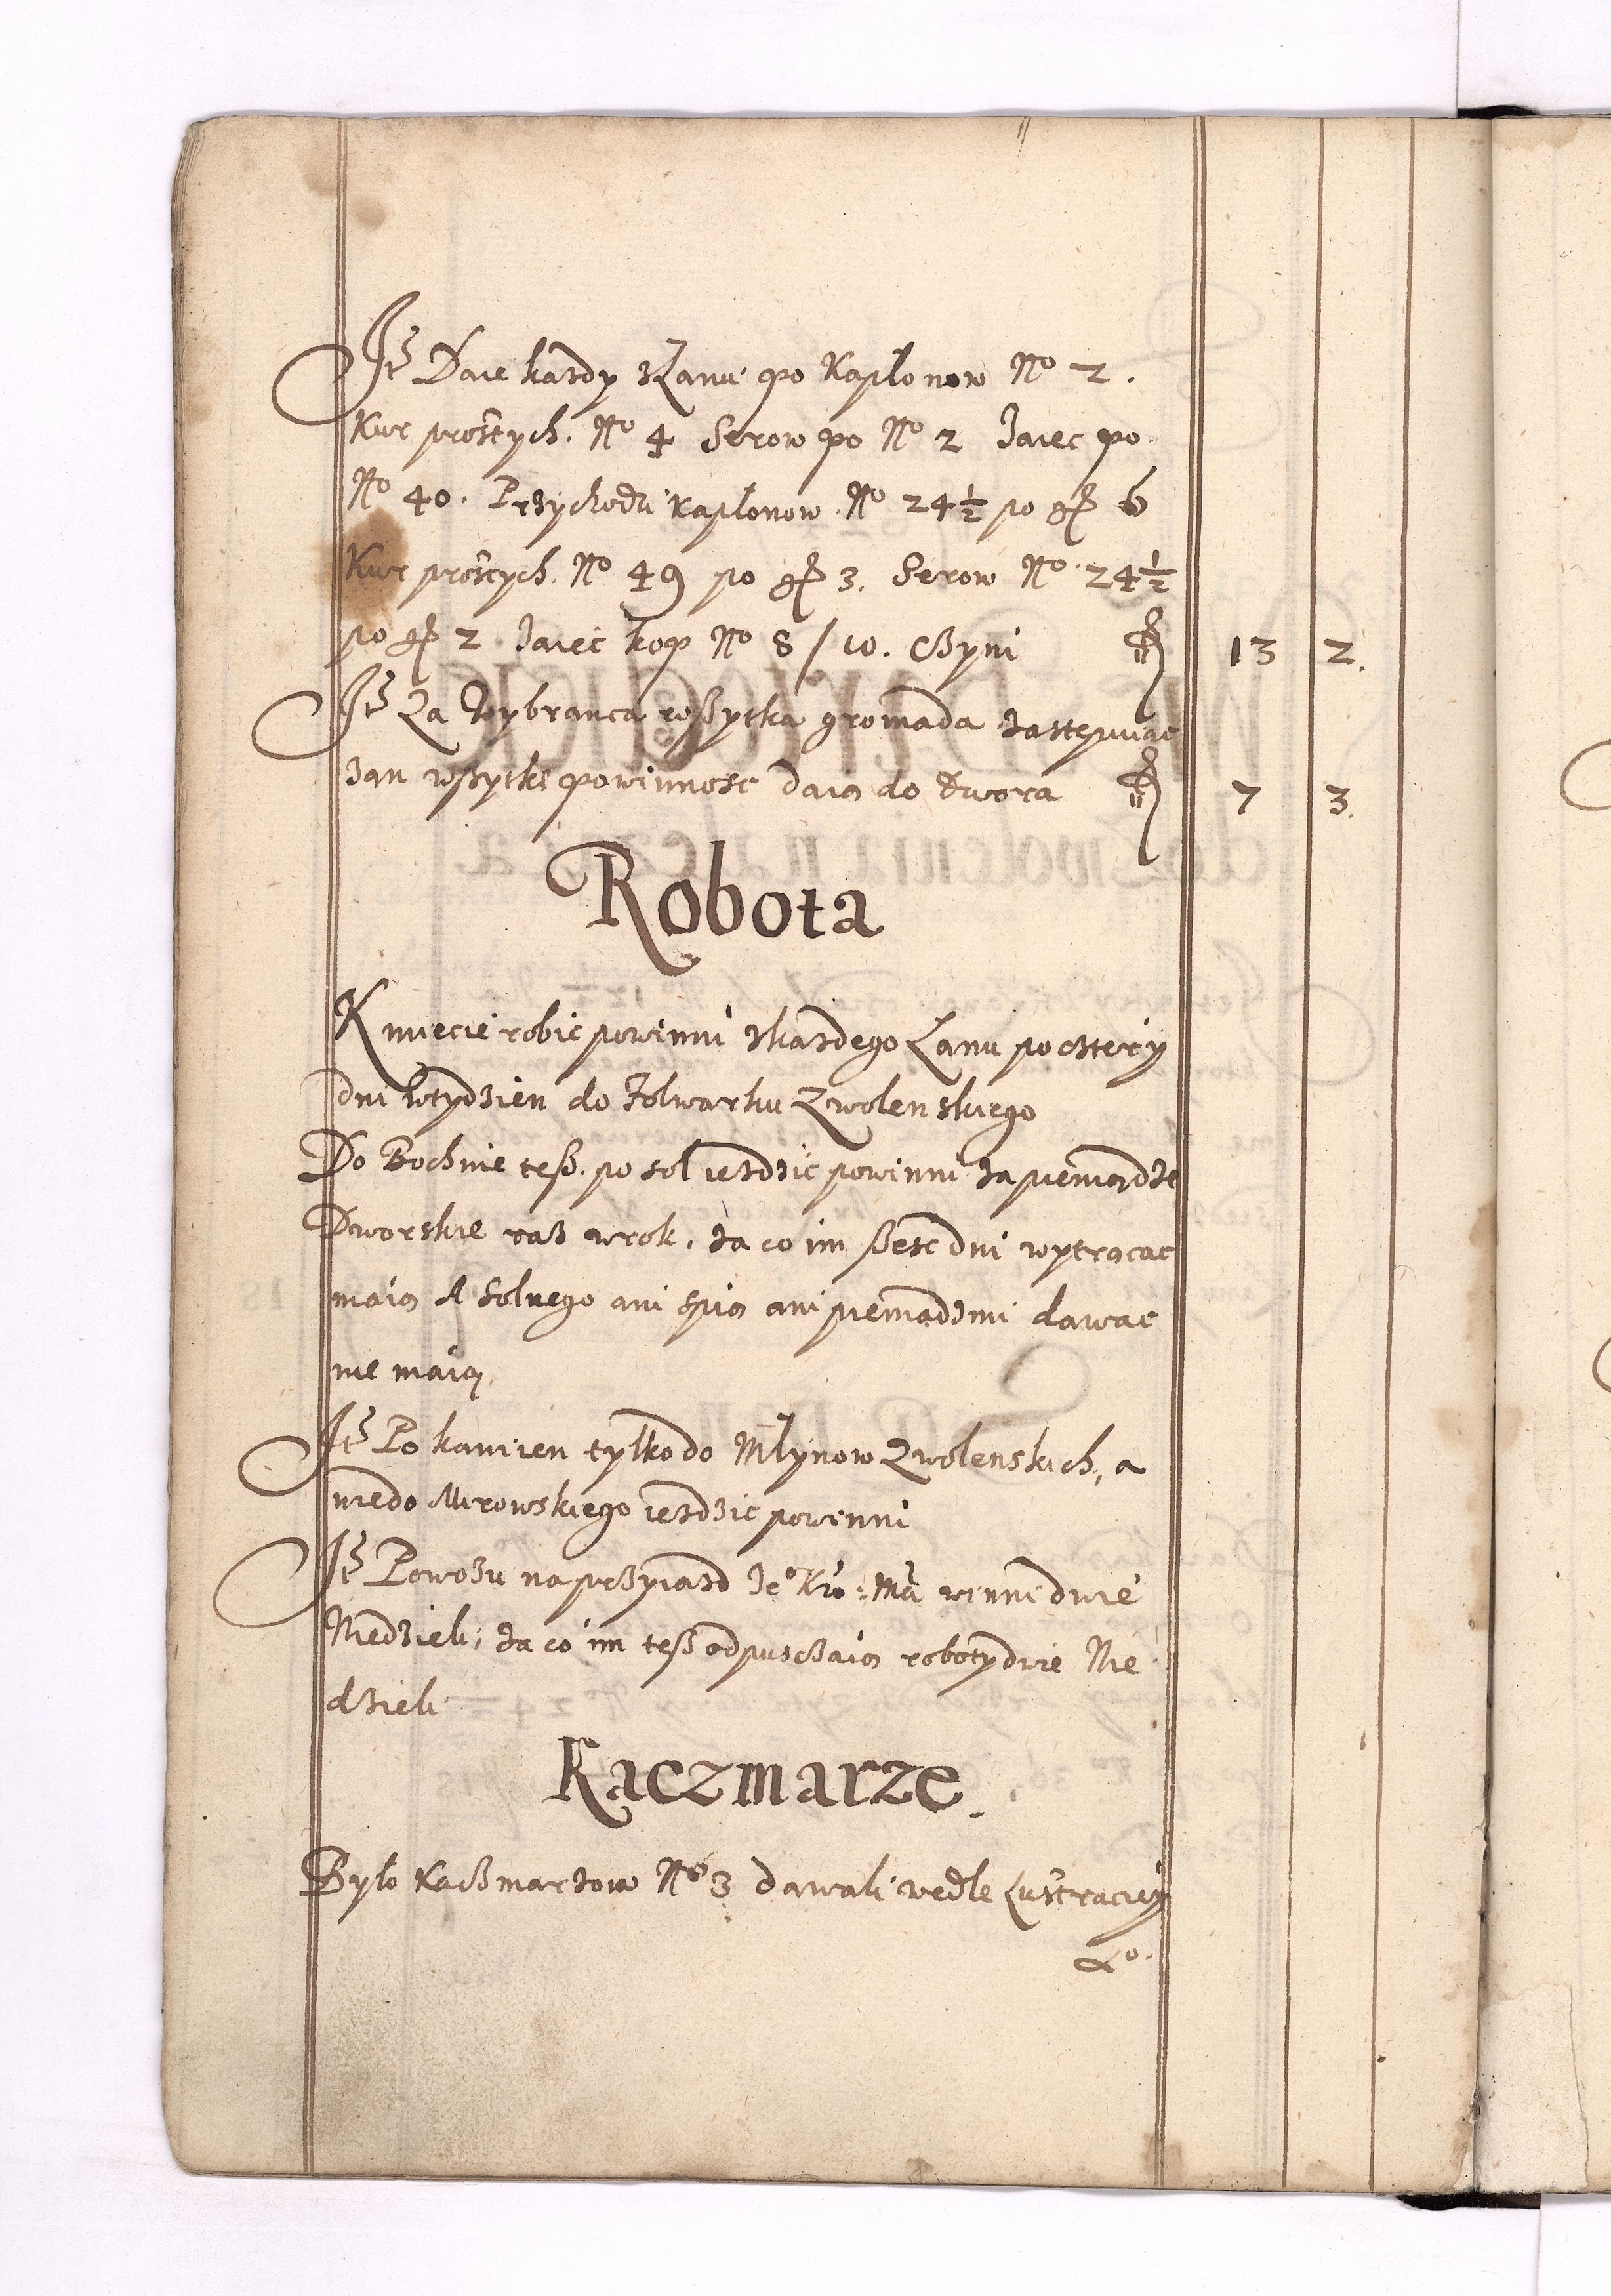 Itē Daie kazdy zŁanu po Kapłonow No 2.
Kur prostych. No 4 Serow po No 2 Jaiec po
No 40. Przychodzi kapłonow No 24½ po gr 6
Kur prostych. No 49 po gr 3. Serow No 24½
po gr 2 Jaiec kop No 8/10. cżyni fl 13 2.
Itē Za Wybranca wszytka gromada zastępuiąc
zan wszytkę powinnosc daią do dwora fl 7 3.
Robota
Kmiecie robic powinni zkazdego Łanu po cztery
dni wtydzien do folwarku Zwolenskiego
Do Bochnie tesz. po sol iezdzic powinni za pieniądze
Dworskie raz wrok, za co im szesc dni wytrącac
maią A Solnego ani spią ani pieniądzmi dawac
nie maią.
Itē Po kamien tylko do Młynow Zwolenskich, a
niedo Mirowskiego iezdzic powinni
Itē Powozu na przyiazd Jeo Kro: Mci winni dwie
Niedzieli, za co im tesz odpuszczaią roboty dwie Nie
dzieli
Kaczmarze.
Było Kaczmarzow No 3 dawali wedle Lustraciey